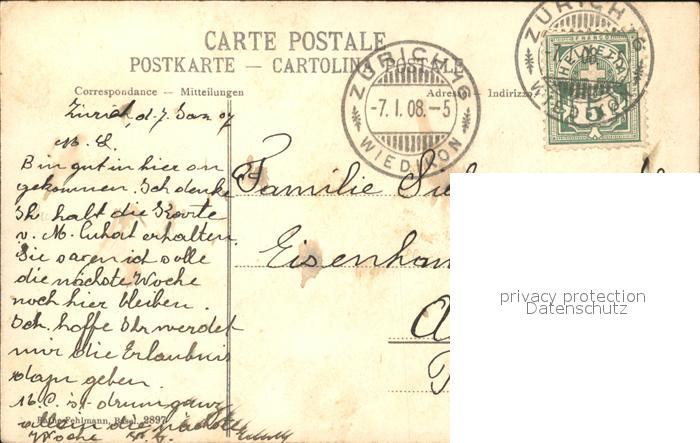 CARTE POSTALE
POSTKARTE — CARTOLINA POSTALE
Correspondance — Mitteilungen
Adresse — Indirizzo
ZÜRICH 16
-7. I. 08.-5
WIEDIKON
ZÜRICH 16
WIEDIKON
FRANCO
HELVETIA
5
Zürich, d. 7. Jan. 07
M. L.
Bin gut in hier an
gekommen. Ich denke
Ihr habt die Karte
v. M. erhalten.
Sie sagen ich solle
die nächste Woche
noch hier bleiben.
Ich hoffe Ihr werdet
mir die Erlaubnis
dazu geben.
die nächste
Woche
Familie
privacy protection
Datenschutz
Fehlmann, Basel. 2897